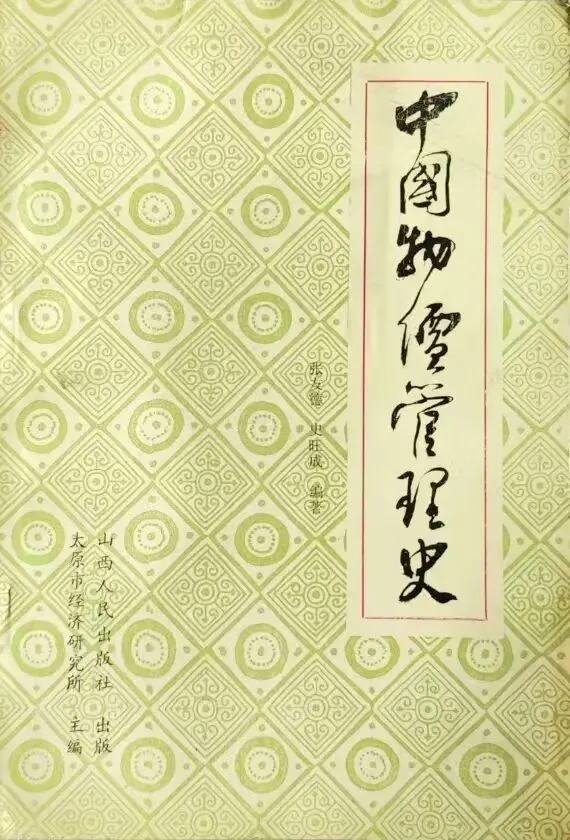 中國物價管理史
张友德 史旺成 编著
山西人民出版社 出版
太原市经济研究所 主编